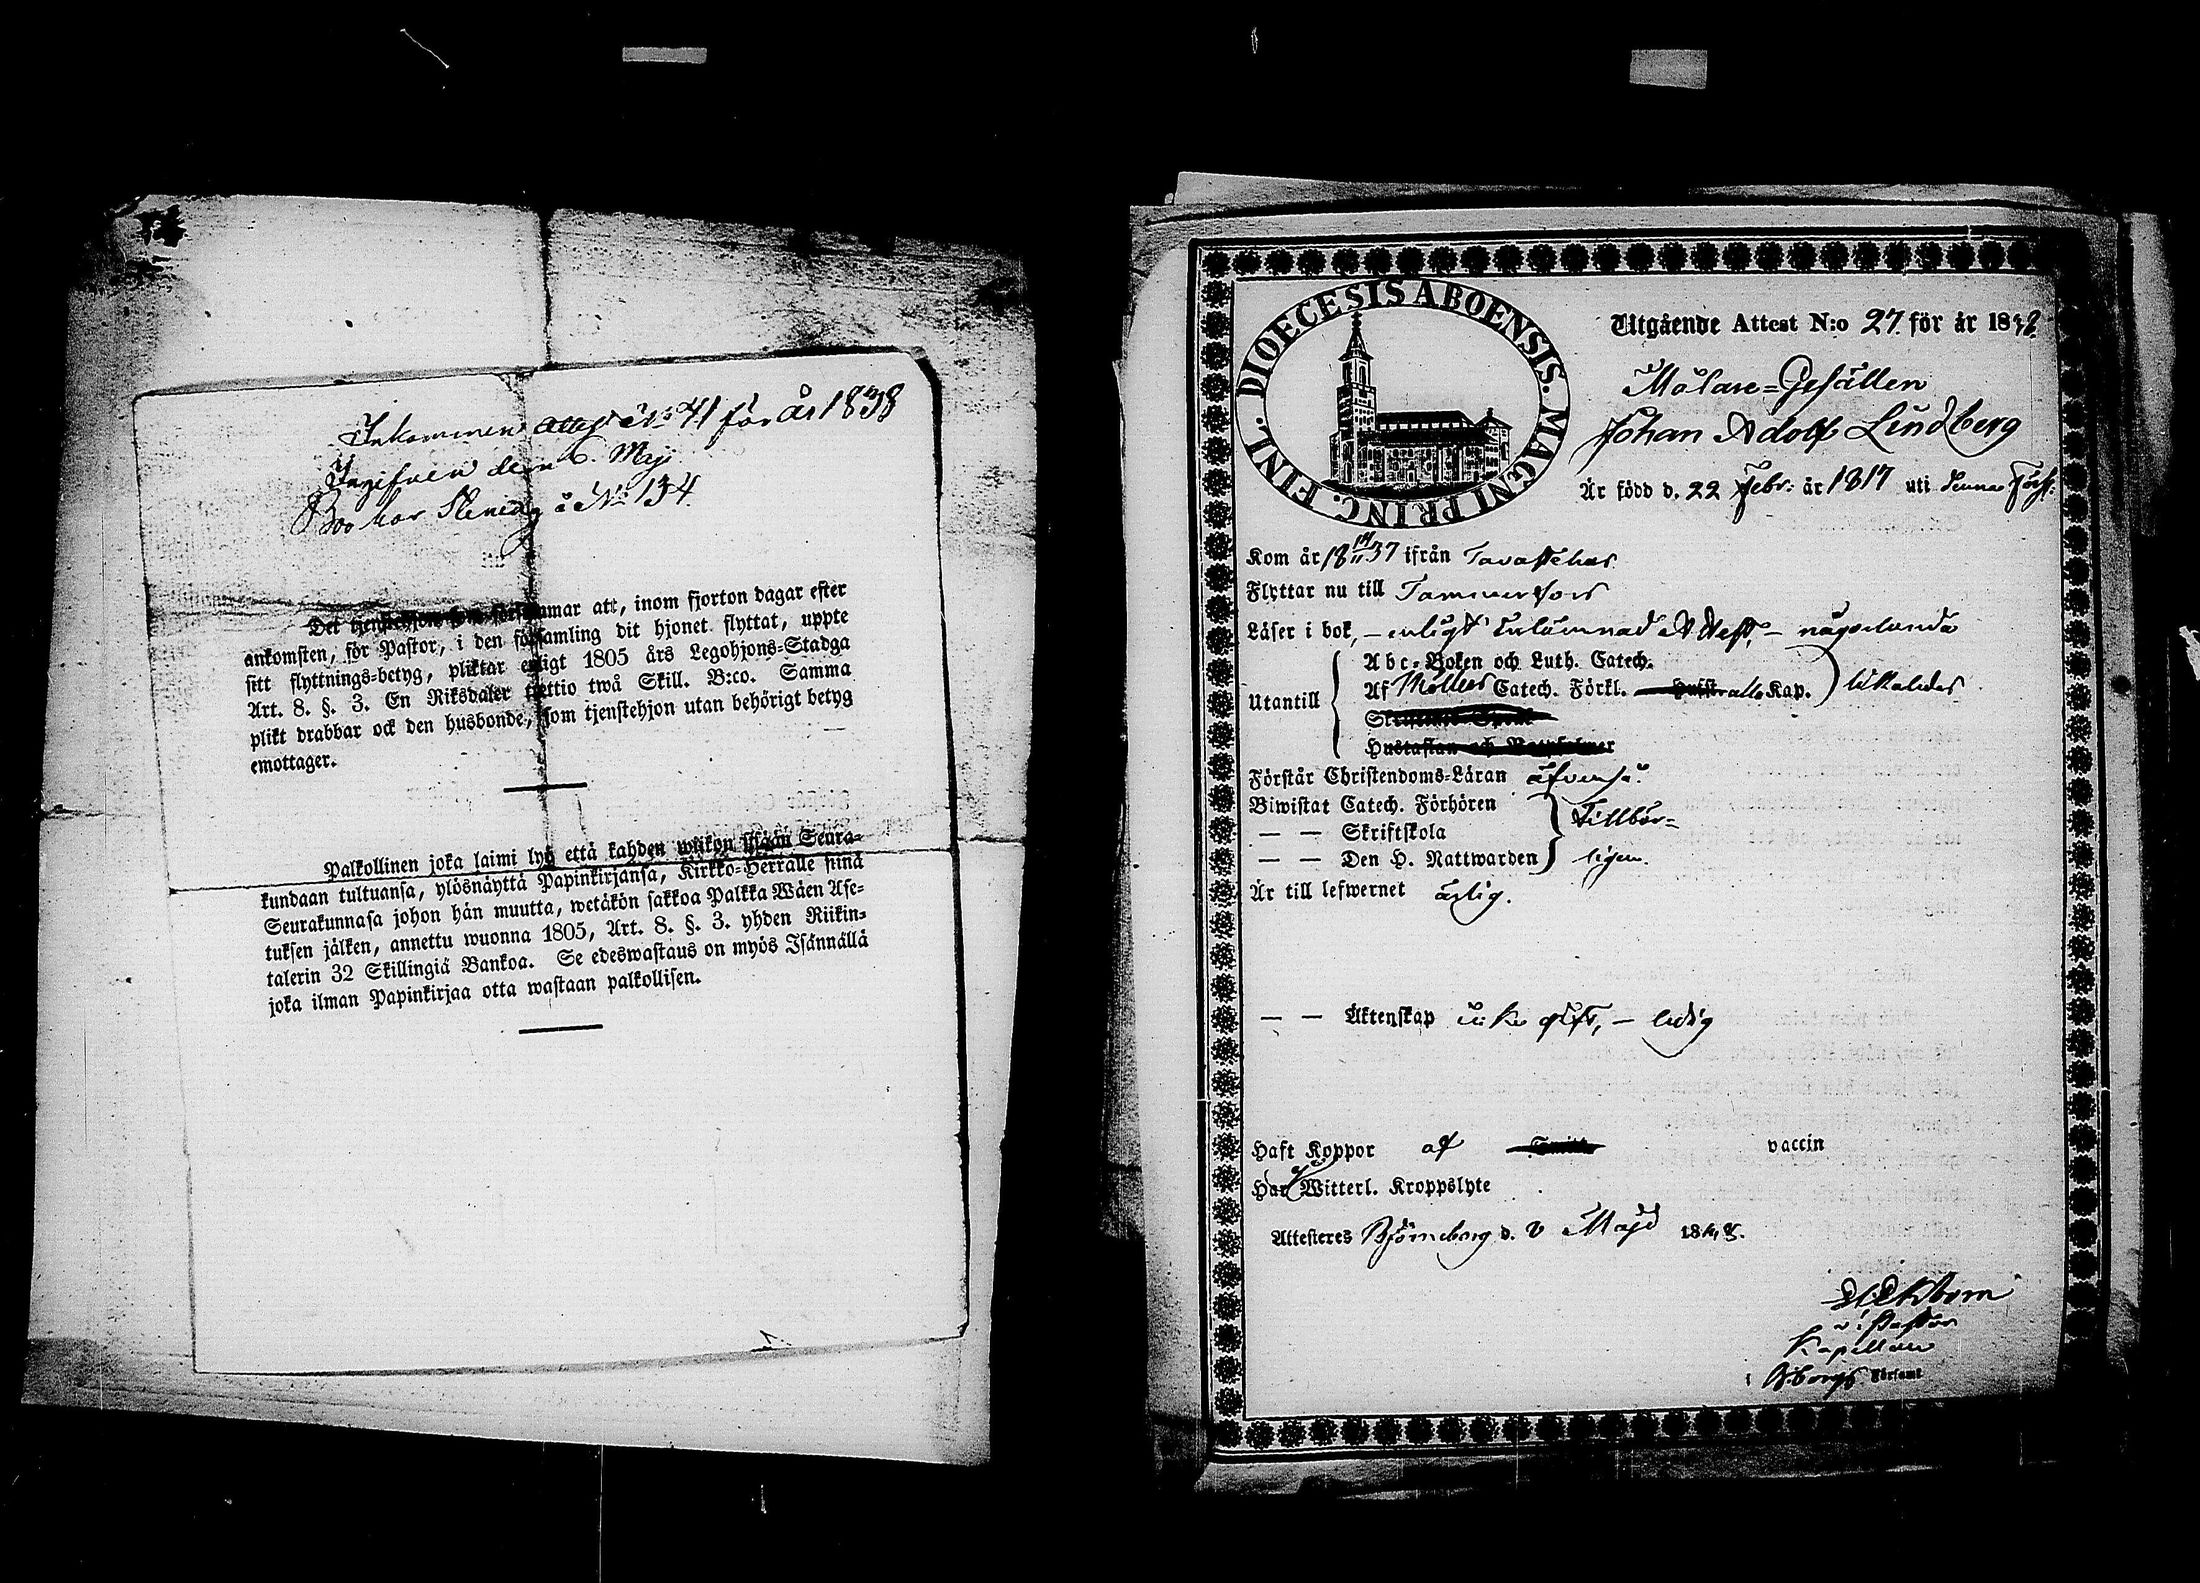 Inkommen attest No 41 för år 1838
Ingifven den 6. Maji
Bonkar å No 134.
Det tjenstehjon som försummar att, inom fjorton dagar efter
ankomsten, för Pastor, i den församling dit hjonet flyttat, uppte
sitt flyttnings-betyg, pliktar enligt 1805 års Legohjons-Stadga
Art. 8. §. 3. En Riksdaler trettio twå Skill. B:co. Samma
plikt drabbar ock den husbonde, som tjenstehjon utan behörigt betyg
emottager.
Palkollinen joka laimi lyö että kahden wiikon sisään Seura-
kundaan tultuansa, ylösnäyttä Papinkirjansa, Kirkko-Herralle siinä
Seurakunnasa johon hän muutta, wetäkön sakkoa Palkka Wäen Ase-
tuksen jälken, annettu wuonna 1805, Art. 8. §. 3. yhden Riikin-
talerin 32 Skillingiä Bankoa. Se edeswastaus on myös Isännällä
joka ilman Papinkirjaa otta wastaan palkollisen.
DIOECESIS ABOENSIS. MAGNI PRINC. FINL.
Utgående Attest N:o 27. för år 1838.
Målare-Gesällen
Johan Adolf Lindberg
Är född d. 22 Febr: år 1817 uti denna Förs:
Kom år 18 14/11 37 ifrån Tavastehus
Flyttar nu till Tammerfors
Läser i bok, – enligt inlämnad Attest, – någorlunda
Utantill
Abc-Boken och Luth. Catech.
Af Möllers Catech. Förkl. alla Kap. likaledes
Hustaflan och Botpsalmer
Förstår Christendoms-Läran äfvenså.
Biwistat Catech. Förhören
— — Skriftskola
— — Den H. Nattwarden
Tillbör-
ligen.
Är till lefwernet ärlig.
— — Äktenskap icke gift, – ledig
Haft Koppor af vaccin
Har Witterl. Kroppslyte
Attesteres Björneborg d. Maji 1838.
v: Pastor
Kapellan
i Bborgs Församl